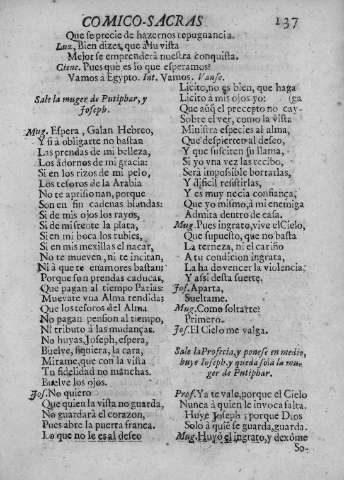 COMICO-SACRAS
137
Que se precie de hazernos repugnancia.
Luz, Bien dizes, que Mu vista
Mejor se emprenderá nuestra conquista.
Cienc. Pues què es lo que esperamos?
Vamos à Egypto. Int. Vamos. Vanse.
Sale la muger de Putiphar, y
Joseph.
Mug. Espera, Galan Hebreo,
Y si à obligarte no bastan
Las prendas de mi belleza,
Los adornos de mi gracia:
Si en los rizos de mi pelo,
Los tesoros de la Arabia
No te aprisionan, porque
Son en fin cadenas blandas:
Si de mis ojos los rayos,
Si de mi frente la plata,
Si en mi boca los rubies,
Si en mis mexillas el nacar,
No te mueven, ni te incitan,
Ni à que te enamores bastan:
Porque son prendas caducas,
Que pagan al tiempo Parias:
Muevate vna Alma rendida;
Que los tesoros del Alma
No pagan pension al tiempo,
Ni tributo à las mudanças.
No huyas, Joseph, espera,
Buelve, siquiera, la cara;
Mirame, que con la vista
Tu fidelidad no manchas.
Buelve los ojos.
Jos. No quiero
Que quien la vista no guarda,
No guardarà el corazon,
Pues abre la puerta franca.
Lo que no le es al deseo
Licito, no es bien, que haga
Licito à mis ojos yo: (ga
Que aun el precepto no cay-
Sobre el ver, como la vista
Ministra especies al alma,
Que despierten al deseo,
Y que susciten su llama,
Si yo vna vez las recibo,
Serà imposible borrarlas,
Y dificil resistirlas,
Y es muy necia confiança,
Que yo mismo, à mi enemiga
Admita dentro de casa.
Mug. Pues ingrato, vive el Cielo,
Que supuesto, que no basta
La terneza, ni el cariño
A tu condicion ingrata,
La ha de vencer la violencia;
Y assi desta suerte.
Jos. Aparta,
Sueltame.
Mug. Como soltarte?
Primero.
Jos. El Cielo me valga.
Sale la Profecia, y ponese en medio,
huye Joseph, y queda sola la mu-
ger de Putiphar.
Prof. Ya te vale, porque el Cielo
Nunca à quien le invoca falta.
Huye Joseph; porque Dios
Solo à quien se guarda, guarda.
Mug. Huyò el ingrato, y dexòme
So-